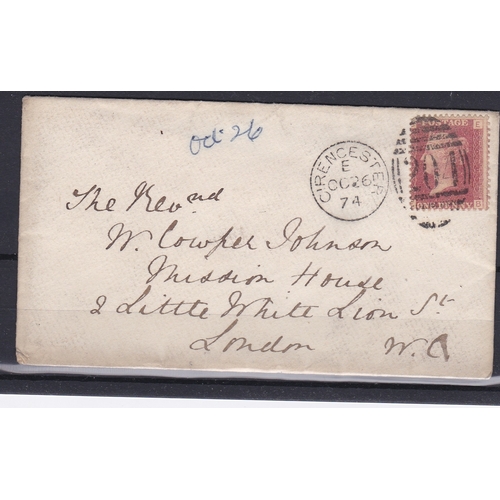 Oct 26
CIRENCESTER
E
OC 26
74
201
The Revnd
W. Cowper Johnson
Mission House
2 Little White Lion St.
London W.C